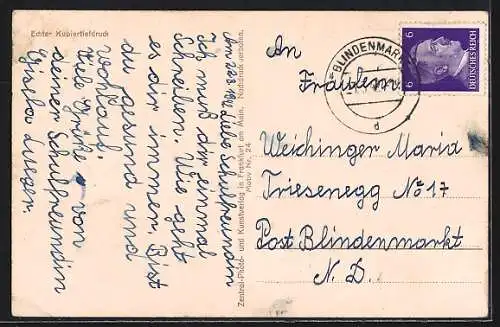 Echter Kupfertiefdruck
Am 26.3.1942 Liebe Schulfreundin
Ich muß dir einmal
Schreiben. Wie geht
es dir immer. Bist
du gesund und
wohlauf.
Viele Grüße von
deiner Schulfreundin
Gisela
Zentral-Photo- und Kunstverlag in Frankfurt am Main. Nachdruck verboten.
Motiv Nr. 24
An
Fräulein
Weichinger Maria
Triesenegg No 17
Post Blindenmarkt
N. D.
BLINDENMARKT
d
6 6
DEUTSCHES REICH